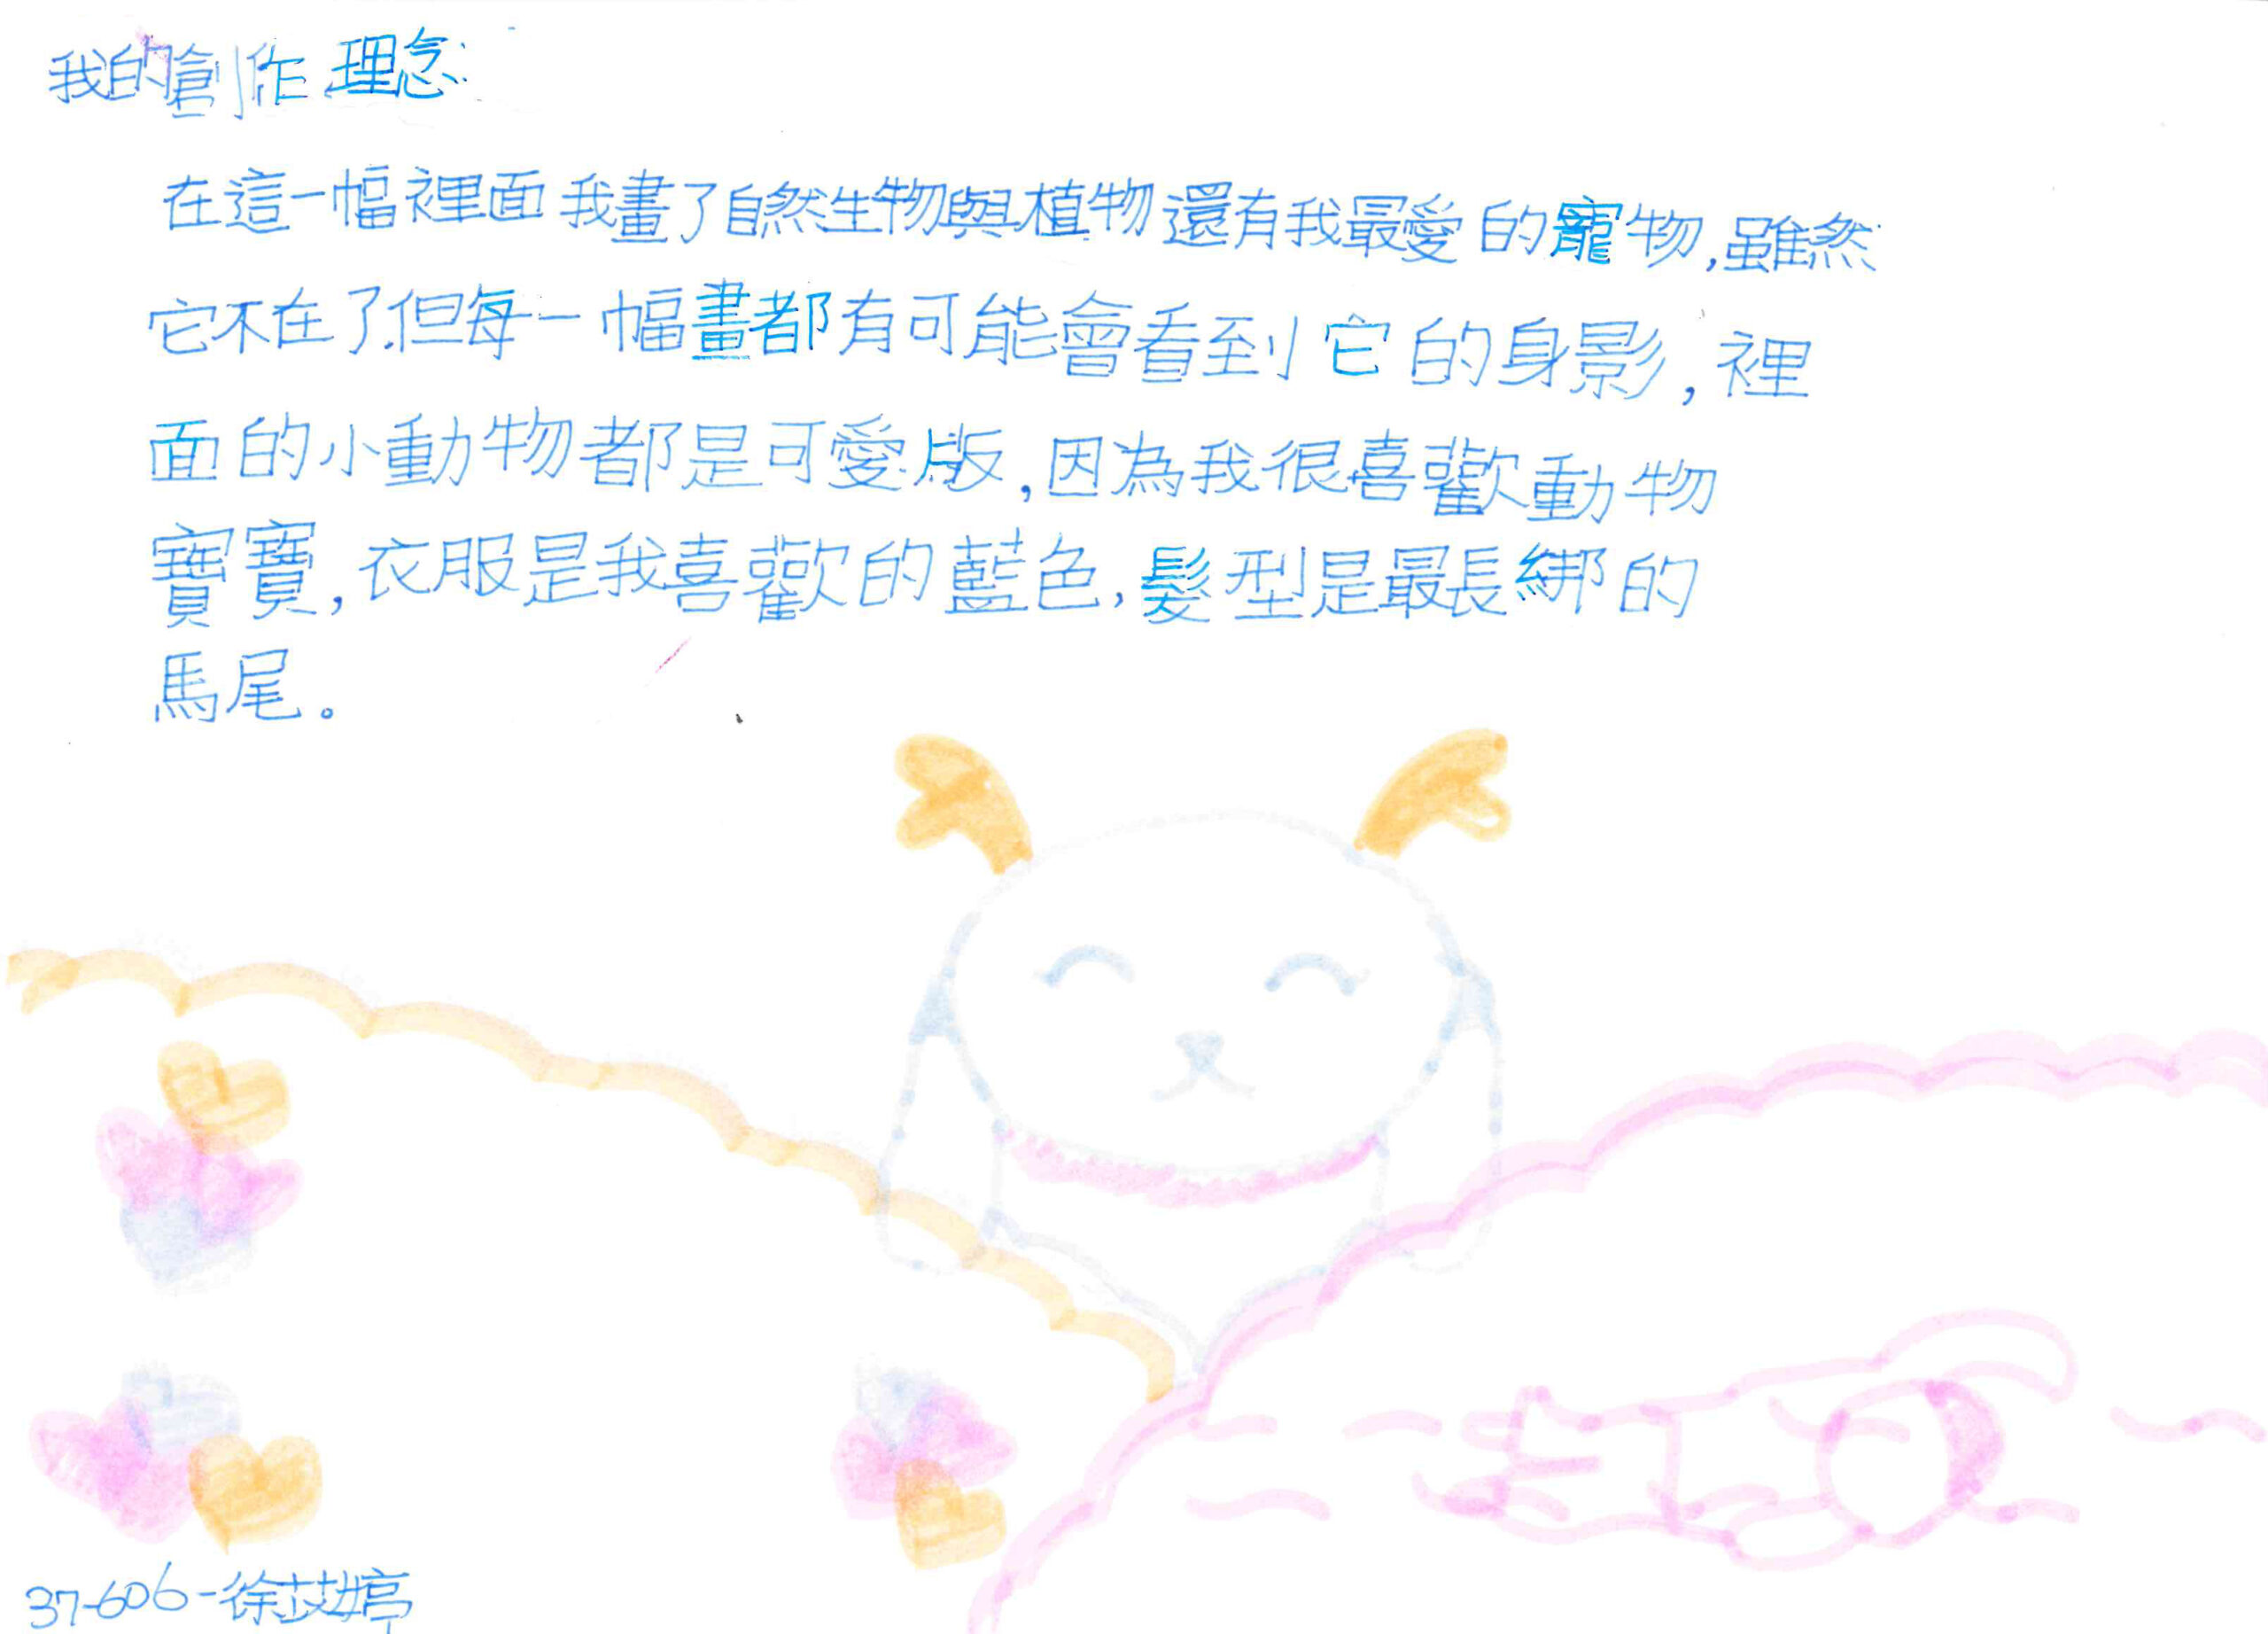 我的創作理念:
在這一幅裡面我畫了自然生物與植物還有我最愛的寵物,雖然
它不在了,但每一幅畫都有可能會看到它的身影,裡
面的小動物都是可愛版,因為我很喜歡動物
寶寶,衣服是我喜歡的藍色,髮型是最長綁的
馬尾。
37-606-徐苡婷